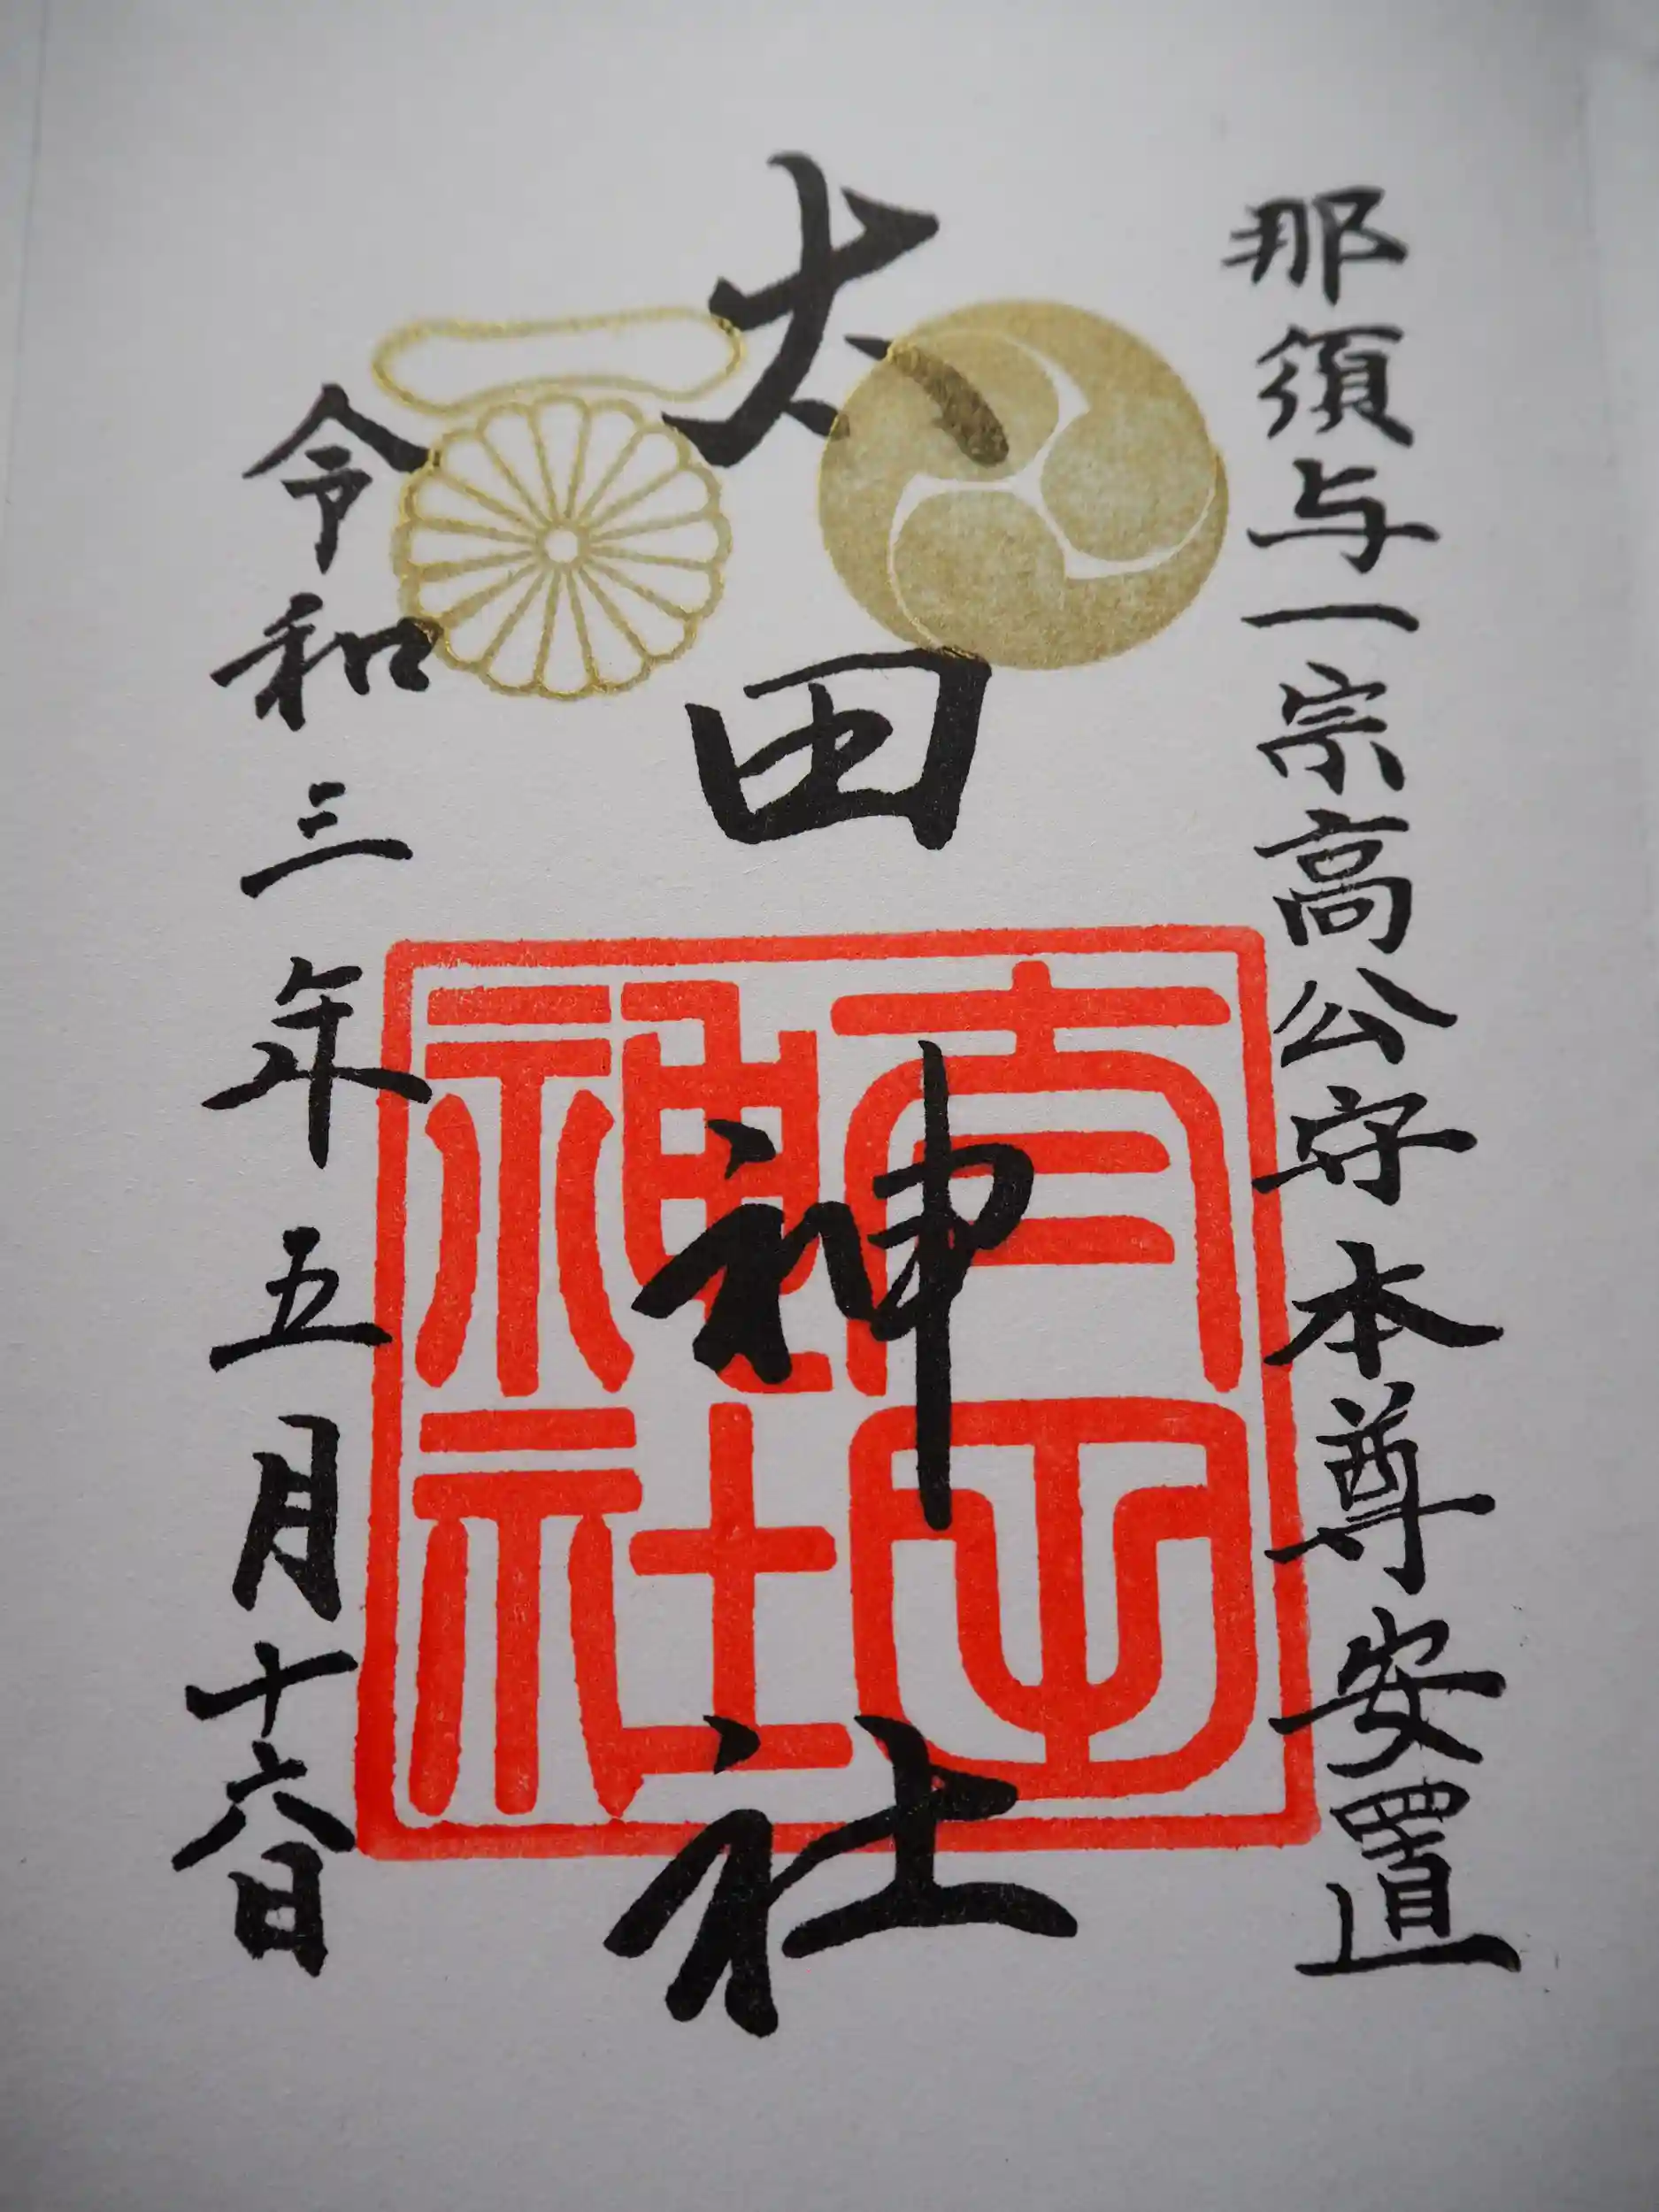 那須与一宗高公守本尊安置
太田神社
神社
令和三年五月十六日